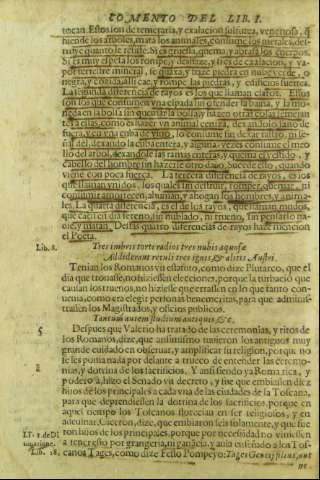 COMENTO DEL LIB. I.
tocan. Estos son de temeraria, y exalacion sulfurea, venenosa, q̃
hiende los arboles, mata los animales, consume los metales, des-
truye quanto le resiste. Si es gruessa, quema, y abrasa los cuerpos.
Si es muy espessa los rompe, y deshaze, y si es de exalacion, y va-
por terrestre mineral, se quaxa, y traze piedra en nuve verde, o
negra, y cozida, assi cae, y rompe las piedras, y edificios fuertes.
La segunda diferencia de rayos es los que llaman clasos. Estos
son los que consumen vna espada sin ofender la baina, y la mo-
neda en la bolsa sin quemar la bolsa, y hazen otras cosas
fuera, y en vna cuba de vino, lo consume sin dexar rastro, ni se-
ñal del, dexando la cuba entera, y algunas vezes consume el meo-
llo del arbol, dexandole las ramas enteras, y quema el vestido, y
cabellos del hombre sin hazerle otro daño. Sucede esto, quando
viene con poca fuerça. La tercera diferencia de rayos, es los
que llaman vnidos, los quales sin destruir, romper, quemar, ni
consumir, amortecen, ahuman, y ahogan los hombres, y anima-
les. La quarta diferencia, es el de los rayos, que llaman mudos,
que cae en dia sereno, sin nublado, ni trueno, sin pensarlo na-
die, y matan. Destas quatro diferencias de rayos haze mencion
el Poeta.
Lib. 8. Tres imbris torti radios tres nubis aquosæ
Addiderant rutuli tres ignis, & alitis Austri.
Tenian los Romanos vn estatuto, como dize Plutarco, que el
dia que tronasse, no hiziessen elecciones, porque la turbacio que
causan los truenos, no hiziesse que errassen en lo que tanto con-
uenia, como era elegir personas benemeritas, para que adminis-
trassen los Magistrados, y oficios publicos.
Tantum autem studium antiquis, &c.
5 Despues que Valerio ha tratado de las ceremonias, y ritos de
los Romanos, dize, que antiguamente tuuieron los antiguos muy
grande cuidado en obseruar, y amplificar su religion, porque no
se les pusiera nada por delante a trueco de entender las ceremo-
nias, y dotrina de los sacrificios. Y ansi siendo ya Roma rica, y
poderosa, hizo el Senado vn decreto, y fue que embiassen diez
hijos de los principales a cada vna de las ciudades de la Toscana,
para que deprendiessen la dotrina de los sacrificios, porque en
aquel tiempo los Toscanos florecian en ser religiosos, y en
adeuinar. Ciceron, dize, que embiaron seis solamente, y que fue-
ron hijos de los principales, porque por necessidad no viniessen
LI. 1. de Di
uinatione. a tener esto por grangeria, ni ganacia, y auia enseñado a los Tos-
Lib. 18. canos Tages, como dize Festo Pompeyo: Tages Genij filius, aut
ne